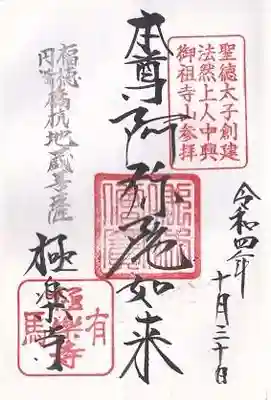 聖德太子創建
法然上人中興
御祖寺山参拝
令和四年
十月三十日
本尊阿弥陀如来
福徳
円満
橋杭地蔵菩薩
極楽寺
有
極楽寺
馬